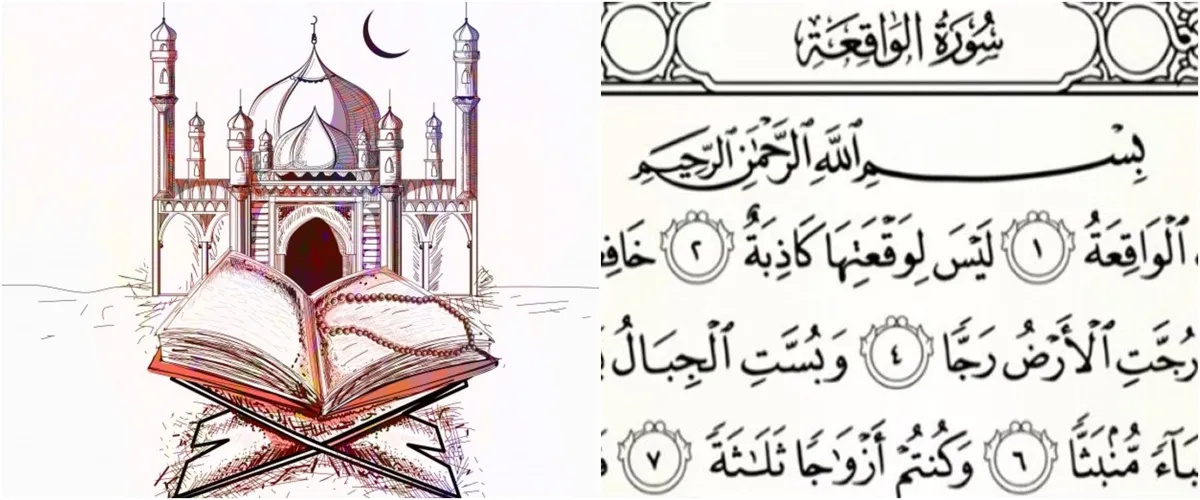 سُورَةُ الْوَاقِعَةِ
بِسْمِ ٱللَّهِ ٱلرَّحْمَٰنِ ٱلرَّحِيمِ
ٱلْوَاقِعَةُ ١ لَيْسَ لِوَقْعَتِهَا كَاذِبَةٌ ٢
رُجَّتِ ٱلْأَرْضُ رَجًّا ٤ وَبُسَّتِ ٱلْجِبَالُ
مُّنۢبَثًّا ٦ وَكُنتُمْ أَزْوَٰجًا ثَلَٰثَةً ٧